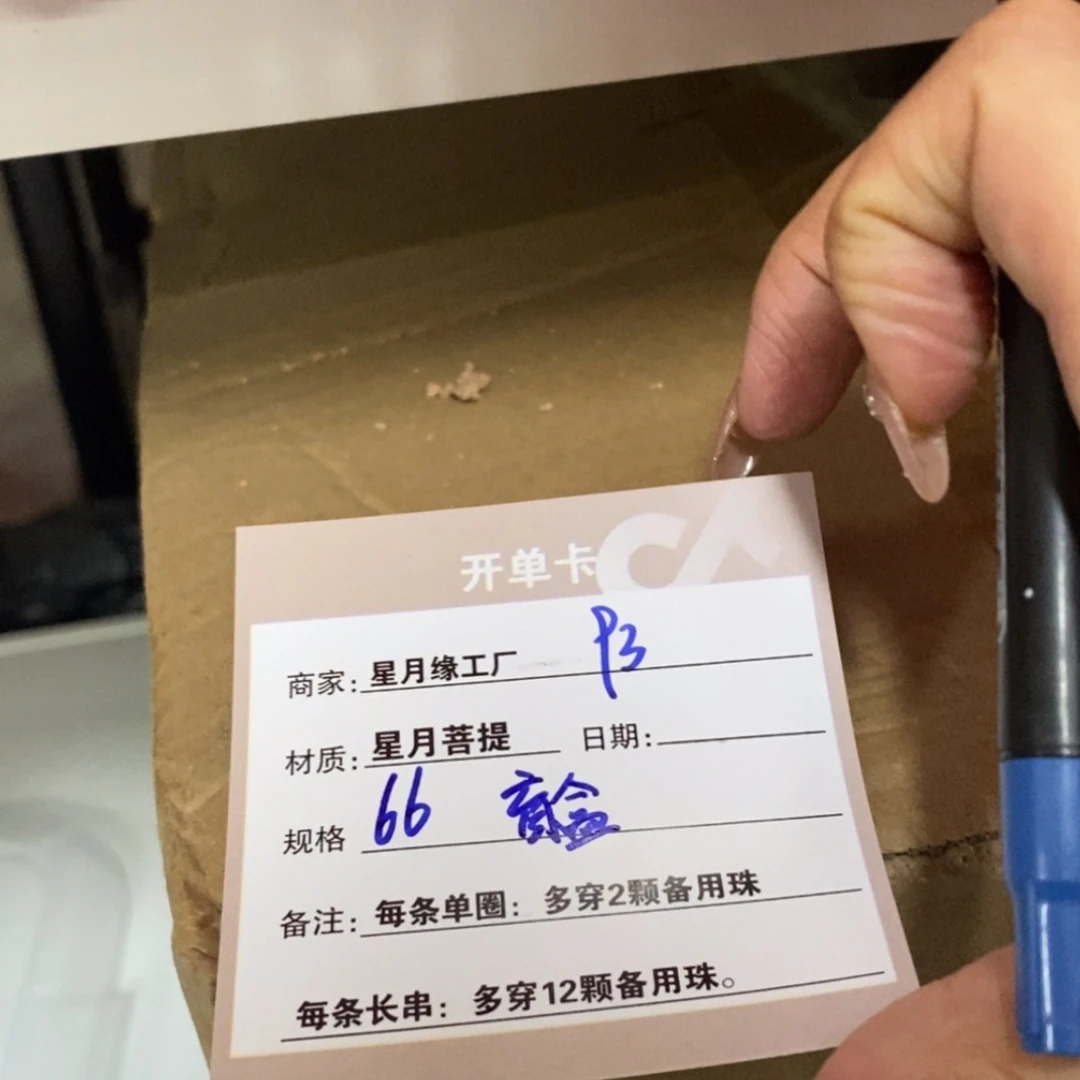 开单卡
商家：星月缘工厂 P3
材质：星月菩提 日期：
规格 66 盲盒
备注：每条单圈：多穿2颗备用珠
每条长串：多穿12颗备用珠。